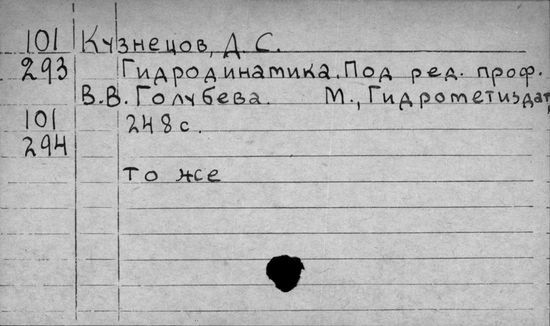 101 Кузнецов, Д. С.
293 Гидродинамика. Под ред. проф.
В.В. Голубева. М., Гидрометиздат,
101 248 с.
294
То же